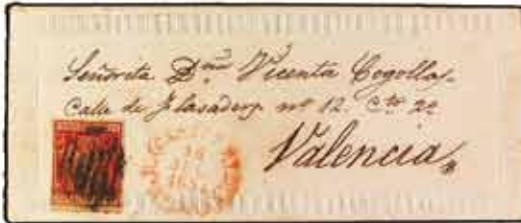 Señorita Dña Vicenta Cogollos
Calle de nº 12. Cto 2º
Valencia